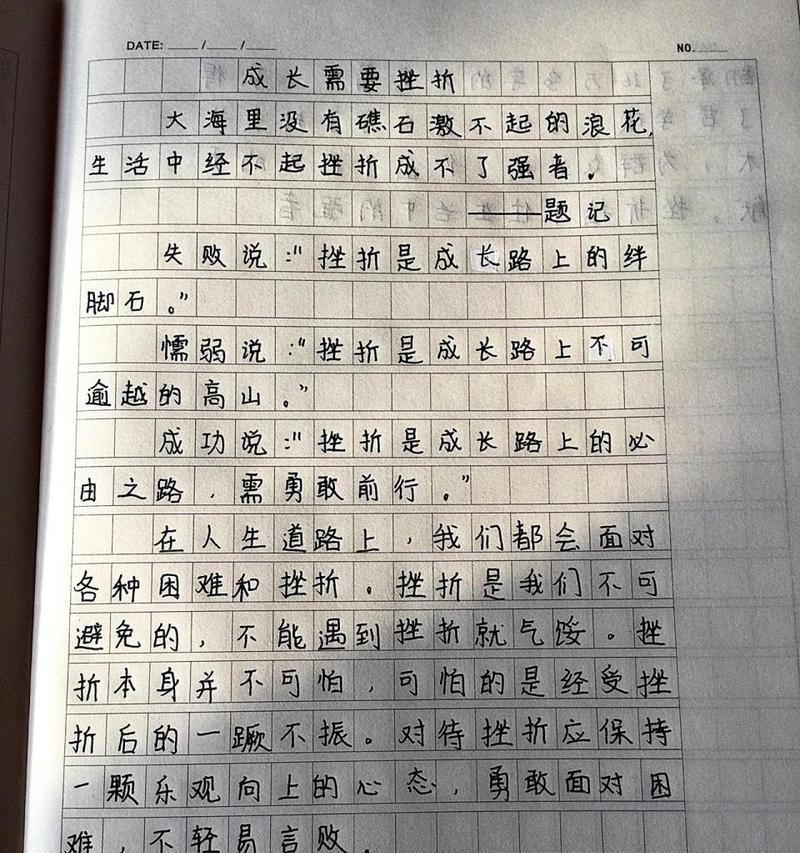 DATE: ___/___/___ NO.
成长需要挫折
大海里没有礁石激不起的浪花,
生活中经不起挫折成不了强者。
——题记
失败说:"挫折是成长路上的绊
脚石。"
懦弱说:"挫折是成长路上不可
逾越的高山。"
成功说:"挫折是成长路上的必
由之路,需勇敢前行。"
在人生道路上,我们都会面对
各种困难和挫折。挫折是我们不可
避免的,不能遇到挫折就气馁。挫
折本身并不可怕,可怕的是经受挫
折后的一蹶不振。对待挫折应保持
一颗乐观向上的心态,勇敢面对困
难,不轻易言败.